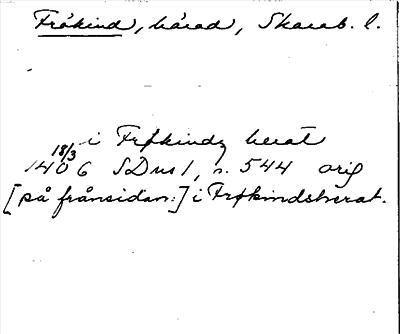 Fråkind, härad, Skarab. l.
i Frøkindz herat
18/3
1406 SDns 1, s. 544 orig
[på frånsidan:] i Frøkindsherat.